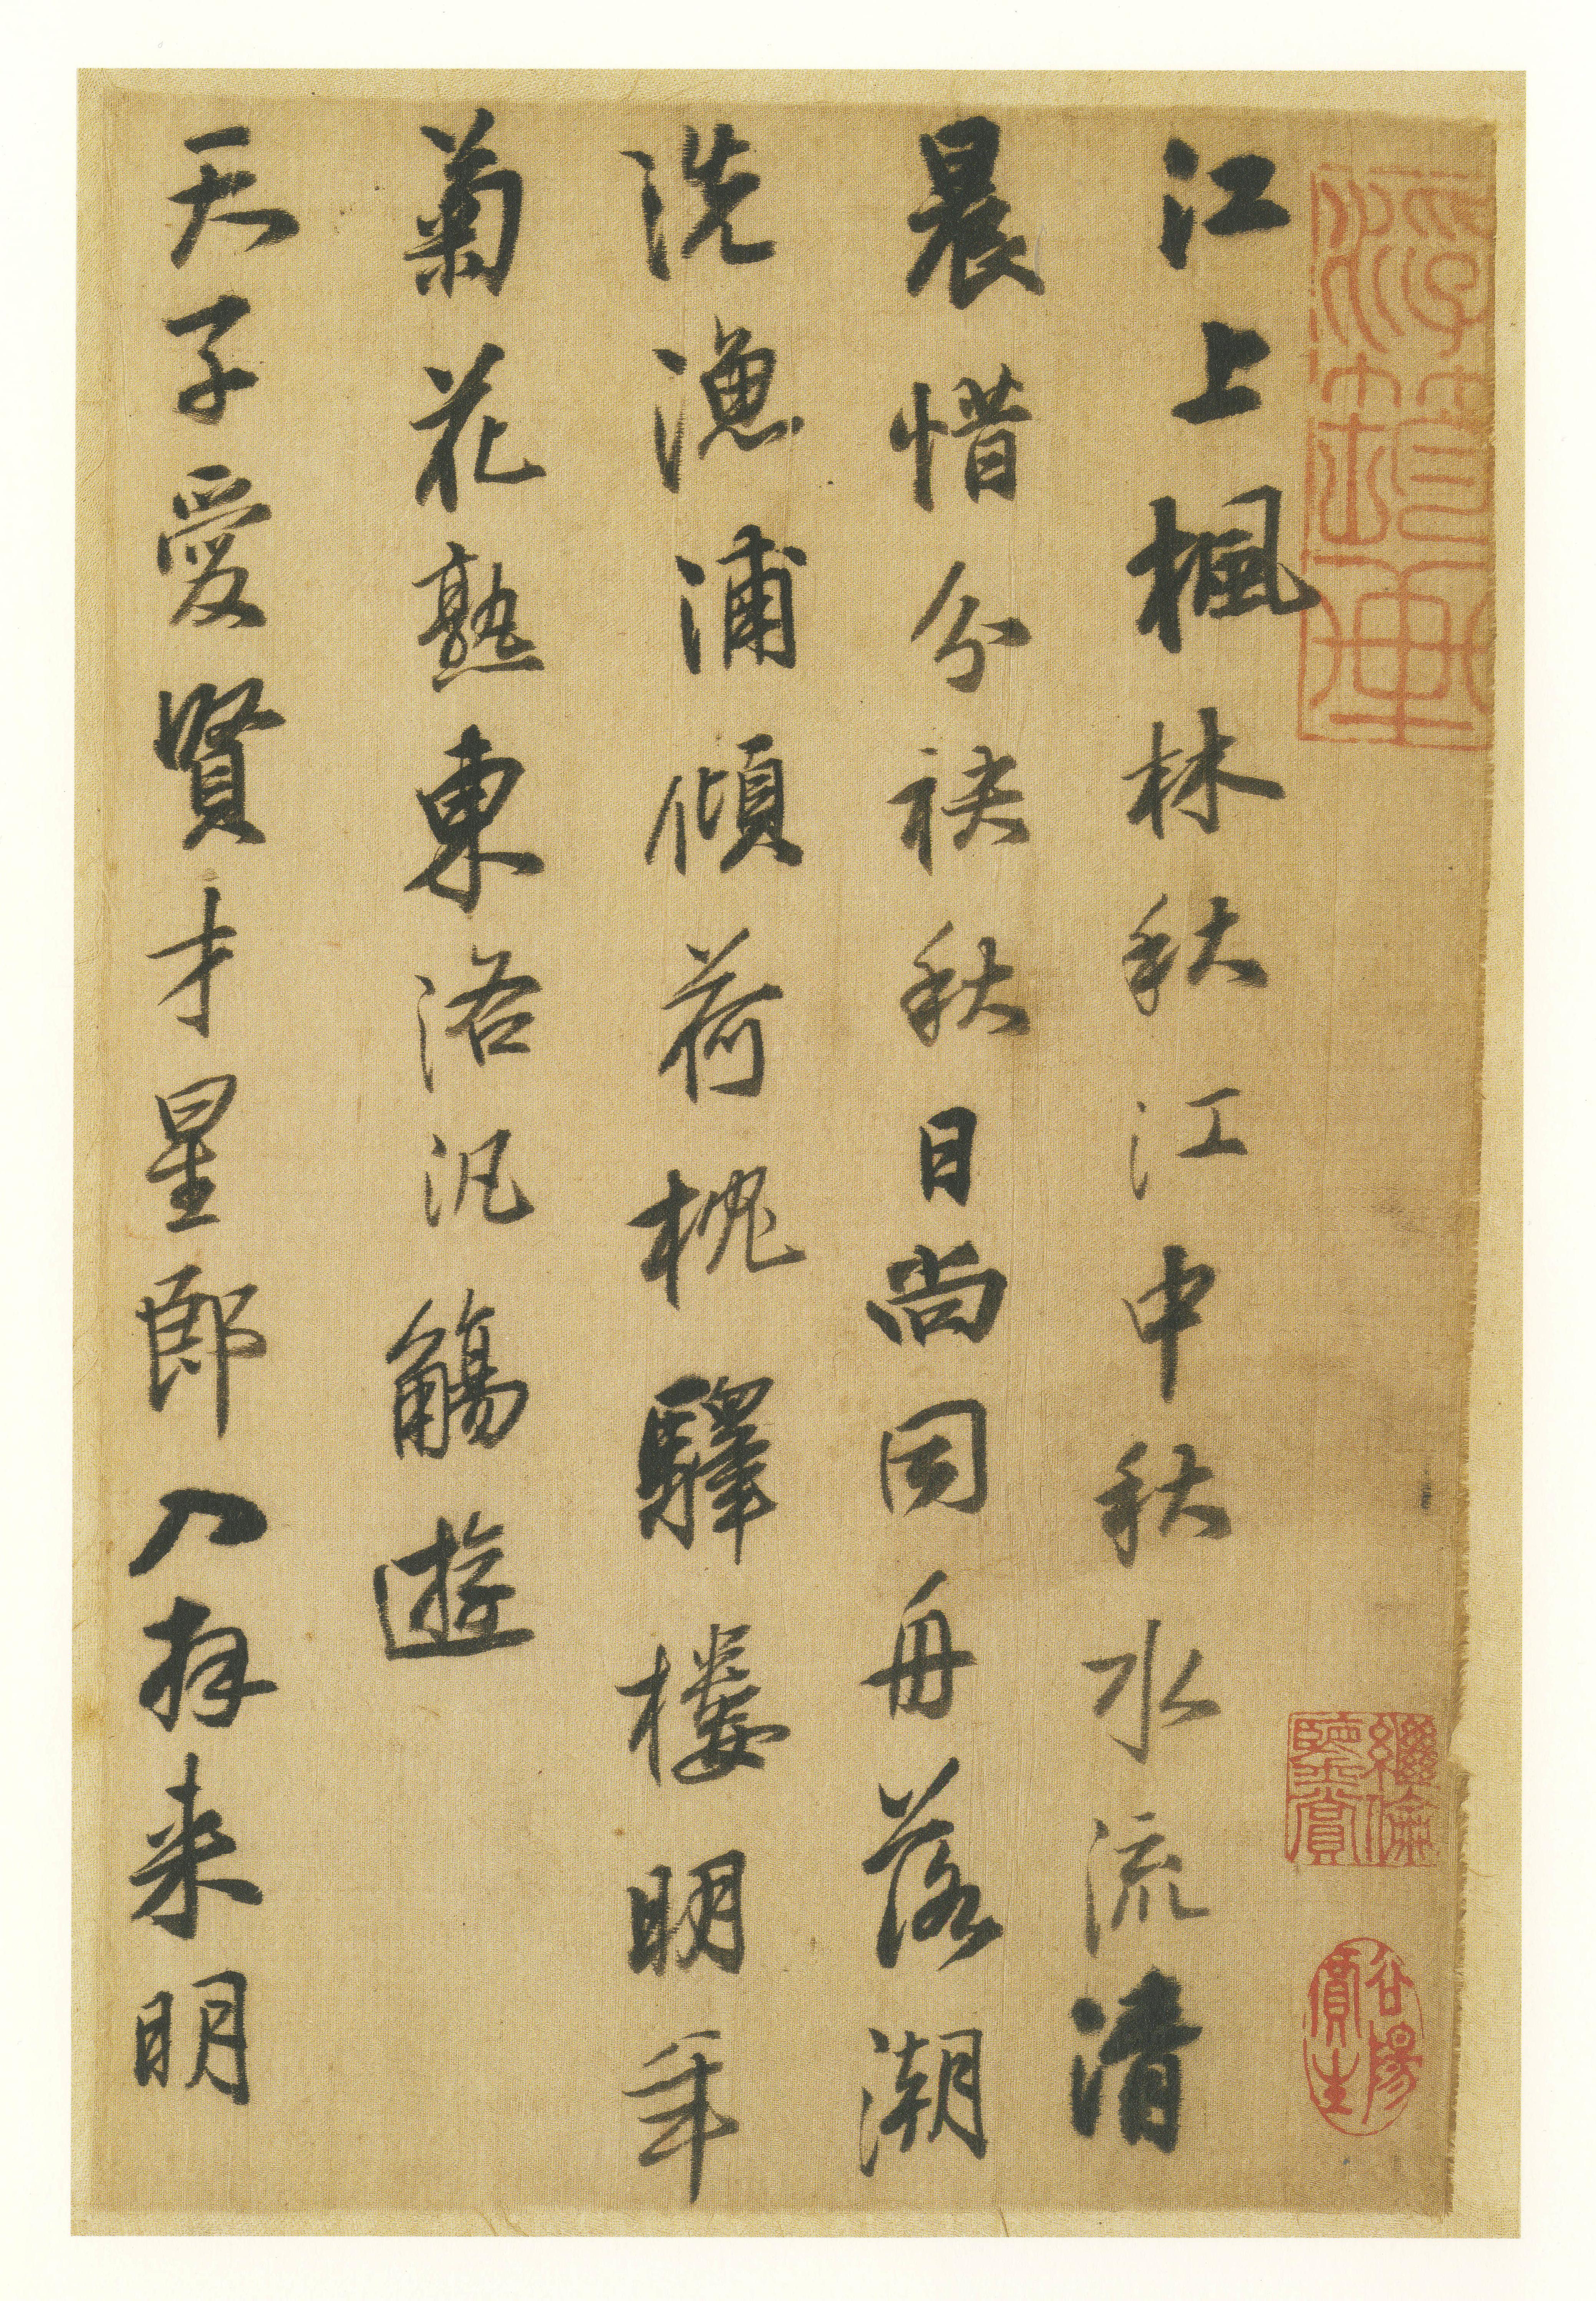 江上楓林秋江中秋水流清
晨惜分袂秋日尚同舟落潮
洗漁浦傾荷枕驛樓明年
菊花熟東洛汎觴遊
天子愛賢才星郎入拜来明
繼倫
鑒賞
谷陽
賣生